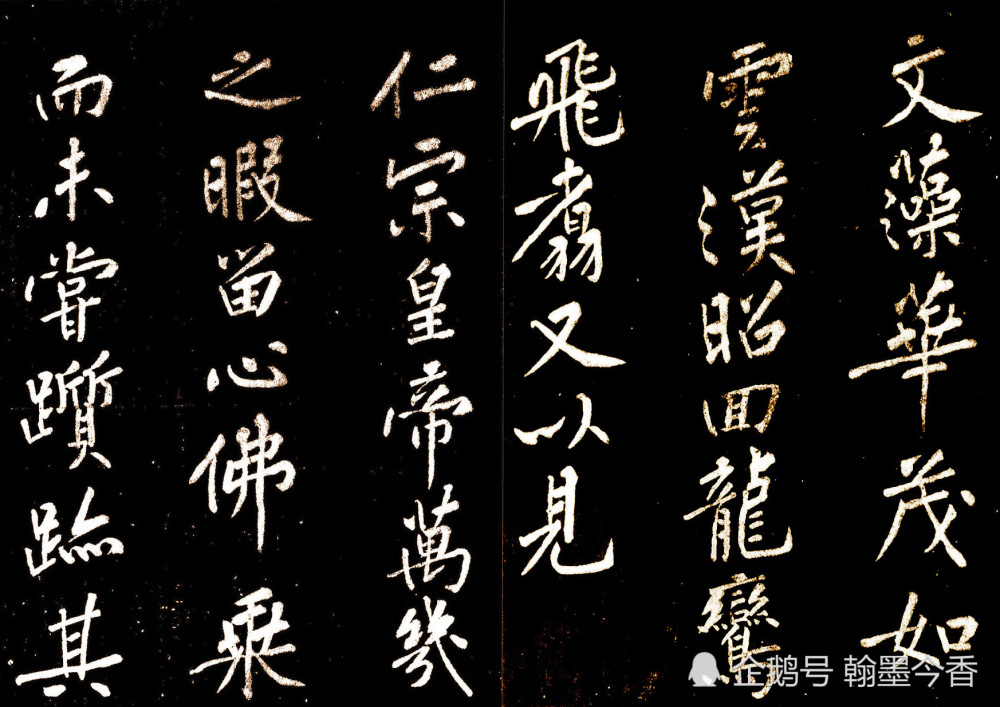 文藻華茂如
雲漢昭回龍鸞
飛翥又以見
仁宗皇帝萬幾
之暇留心佛乘
而未嘗躓跡其
企鹅号 翰墨今香